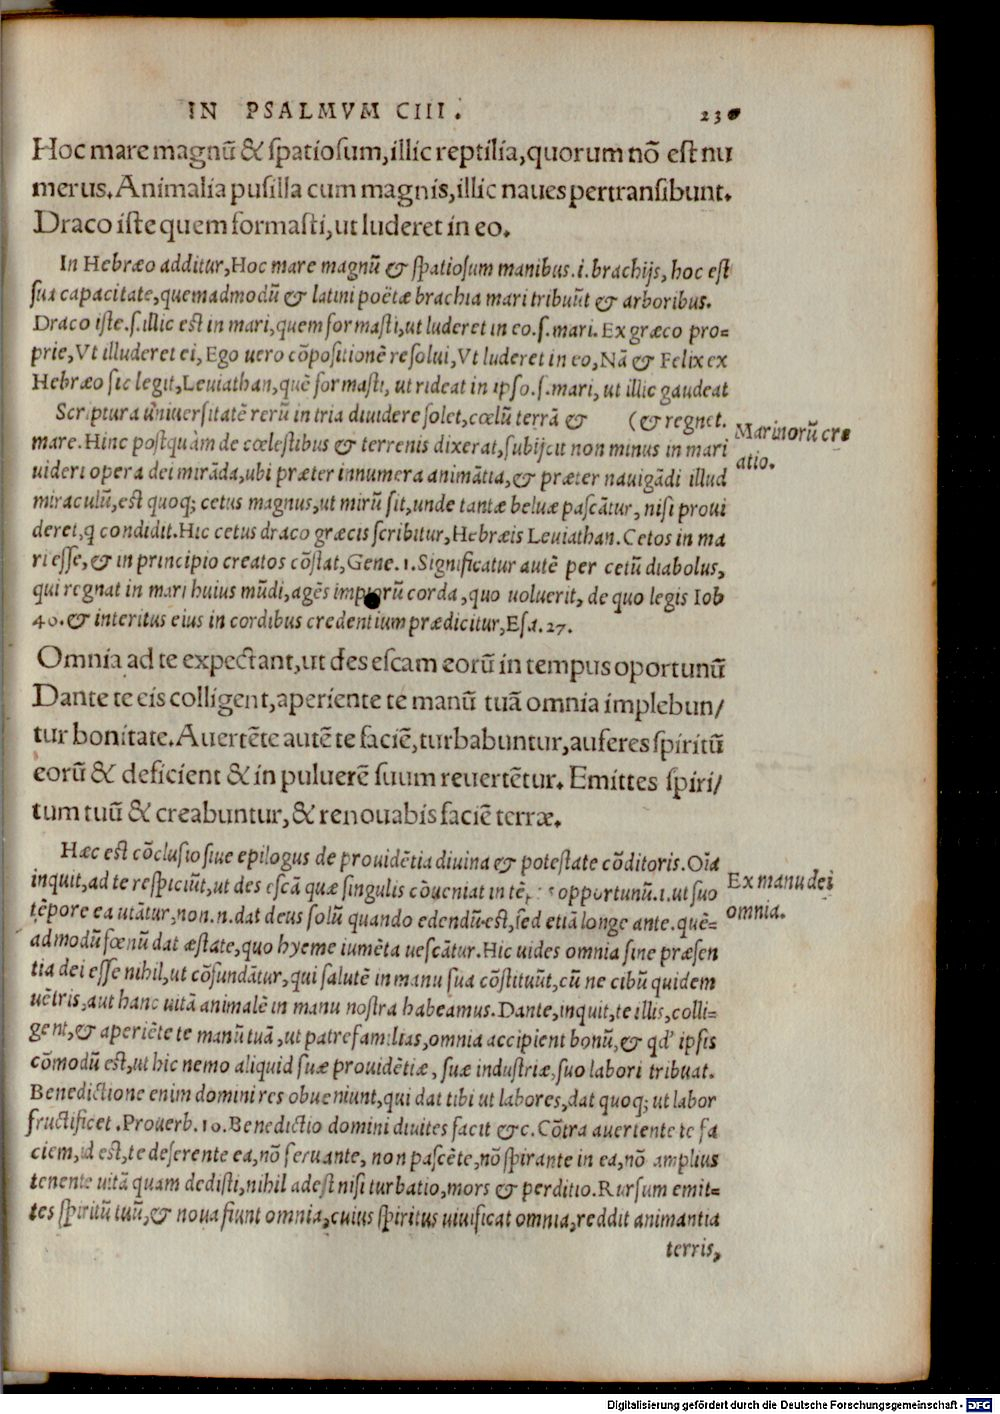 IN PSALMVM CIII.
23
Hoc mare magnū & spatiosum, illic reptilia, quorum nō est nu
merus. Animalia pusilla cum magnis, illic naues pertransibunt.
Draco iste quem formasti, ut luderet in eo.
In Hebræo additur, Hoc mare magnū & spatiosum manibus .i. brachijs, hoc est
sua capacitate, quemadmodū & latini poëtæ brachia mari tribuūt & arboribus.
Draco iste .s. illic est in mari, quem formasti, ut luderet in eo .s. mari. Ex græco pro=
prie, Vt illuderet ei, Ego uero cōpositionē resolui, Vt luderet in eo, Nā & Felix ex
Hebræo sic legit, Leuiathan, quē formasti, ut rideat in ipso .s. mari, ut illic gaudeat
Scriptura uniuersitatē rerū in tria diuidere solet, cœlū terrā & (& regnet.
mare. Hinc postquàm de cœlestibus & terrenis dixerat, subijcit non minus in mari
uideri opera dei mirāda, ubi præter innumera animātia, & præter nauigādi illud
miraculū, est quoq; cetus magnus, ut mirū sit, unde tantæ beluæ pascātur, nisi proui
deret, q condidit. Hic cetus draco græcis scribitur, Hebræis Leuiathan. Cetos in ma
ri esse, & in principio creatos cōstat, Gene. 1. Significatur autē per cetū diabolus,
qui regnat in mari huius mūdi, agēs impiorū corda, quo uoluerit, de quo legis Iob
40. & interitus eius in cordibus credentium prædicitur, Esa. 27.
Marinorū cre
atio.
Omnia ad te expectant, ut des escam eorū in tempus oportunū
Dante te eis colligent, aperiente te manū tuā omnia implebun/
tur bonitate. Auertēte autē te faciē, turbabuntur, auferes spiritū
eorū & deficient & in puluerē suum reuertētur. Emittes spiri/
tum tuū & creabuntur, & renouabis faciē terræ.
Hæc est cōclusio siue epilogus de prouidētia diuina & potestate cōditoris. Oīa
inquit, ad te respiciūt, ut des escā quæ singulis cōueniat in opportunū .i. ut suo
tēpore ea utātur, non .n. dat deus solū quando edendū est, sed etiā longe ante. quē=
admodū fœnū dat æstate, quo hyeme iumēta uescātur. Hic uides omnia sine præsen
tia dei esse nihil, ut cōfundātur, qui salutē in manu sua cōstituūt, cū ne cibū quidem
uētris, aut hanc uitā animalē in manu nostra habeamus. Dante, inquit, te illis, colli=
gent, & aperiēte te manū tuā, ut patrefamilias, omnia accipient bonū, & qd' ipsis
cōmodū est, ut hic nemo aliquid suæ prouidētiæ, suæ industriæ, suo labori tribuat.
Benedictione enim domini res obueniunt, qui dat tibi ut labores, dat quoq; ut labor
fructificet. Prouerb. 10. Benedictio domini diuites facit &c. Cōtra auertente te fa
ciem, id est, te deserente ea, nō seruante, non pascēte, nō spirante in ea, nō amplius
tenente uitā quam dedisti, nihil adest nisi turbatio, mors & perditio. Rursum emit=
tes spiritū tuū, & noua fiunt omnia, cuius spiritus uiuificat omnia, reddit animantia
terris,
Ex manu dei
omnia.
Digitalisierung gefördert durch die Deutsche Forschungsgemeinschaft - DFG